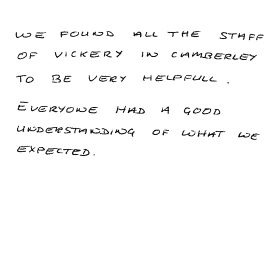 WE FOUND ALL THE STAFF
OF VICKERY IN CAMBERLEY
TO BE VERY HELPFULL.
EVERYONE HAD A GOOD
UNDERSTANDING OF WHAT WE
EXPECTED.